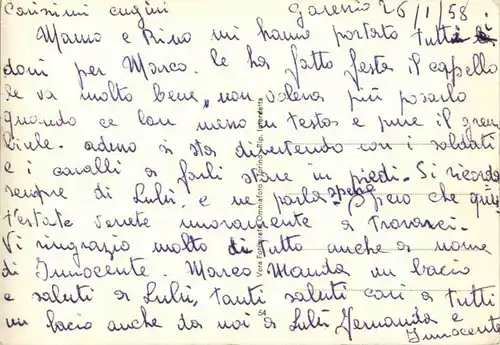 Carissimi cugini Garessio 26/1/58.
Mamma e Pino mi hanno portato tutti i
doni per Marco. Le ha fatto festa il cappello
le va molto bene, non voleva più posarlo
quando ce lan messo in testa e pure il grem
biule. adesso si sta divertendo con i soldati
e i cavalli a farli stare in piedi. Si ricorda
sempre di Lulù, e ne parla spesso. Spero che quest
t'estate venete nuovamente a trovarci.
Vi ringrazio molto di tutto anche a nome
di Innocente. Marco Manda un bacio
e saluti a Lulù, tanti saluti cari a tutti
un bacio anche da noi a Lulù Fernanda e
Innocente
Vera Fotografia Omniafoto Torino - Rip. Interdetta
54